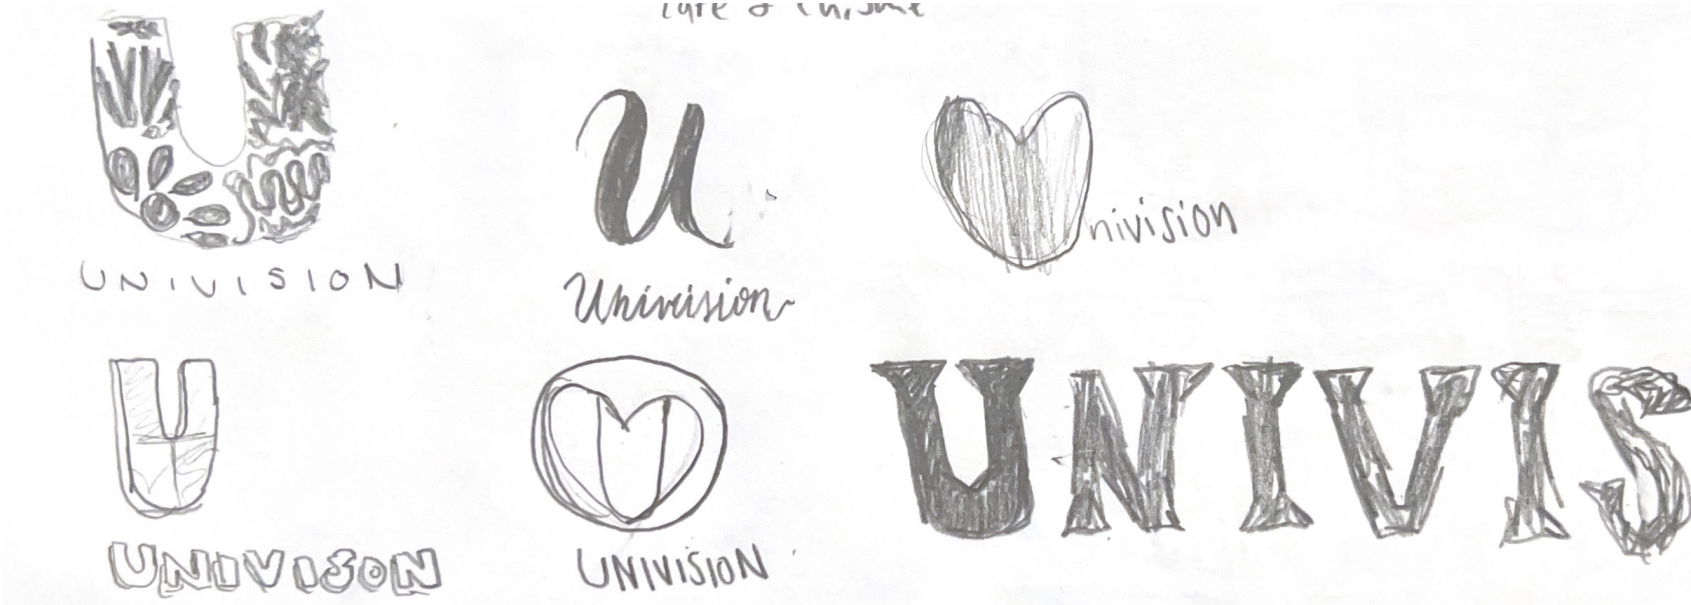 U
UNIVISION
U
Univision
Univision
U
UNIVISON
UNIVISION
UNIVIS